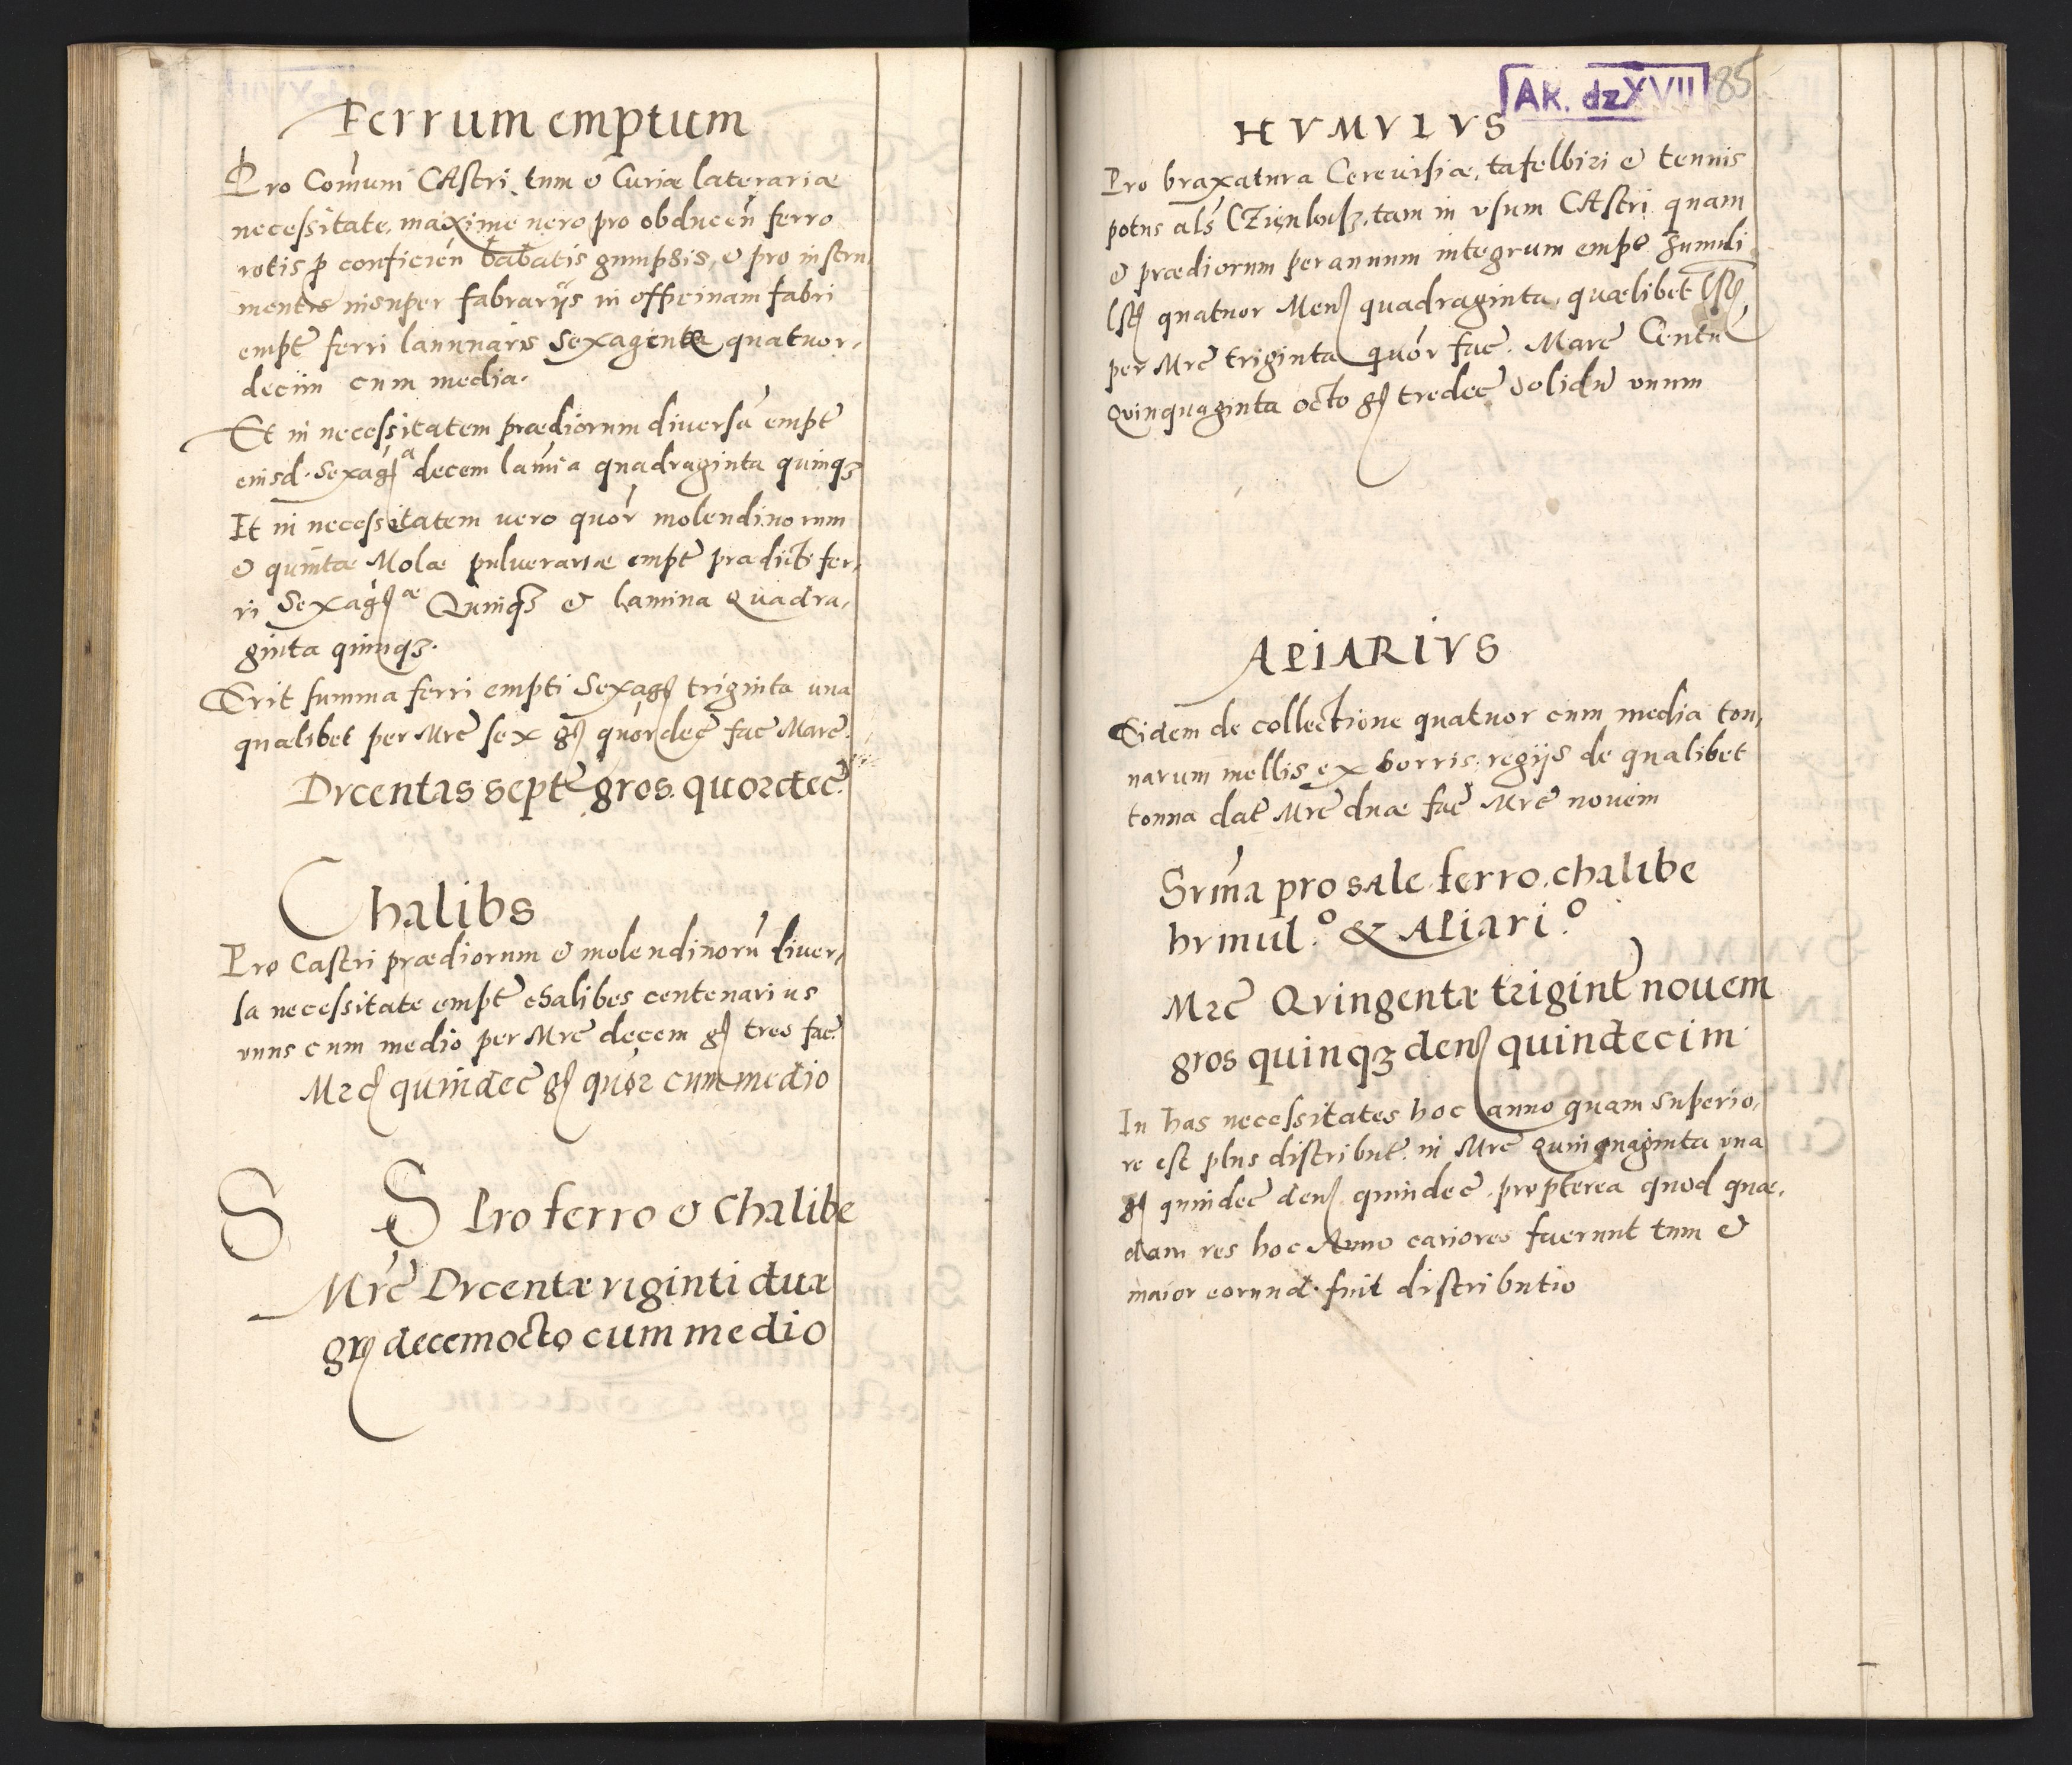 Ferrum emptum
Pro Com̃uni CAstri tum & Curiæ laterariæ
necessitate, maxime uero pro obducen̄ ferro
rotis p̱ conficień babatis gumphis, & pro instru,
mentis insuper fabrarijs in officinam fabri
empt̃ ferri laminaris Sexagentæ quatuor,
decim cum media.
Et in necessitatem prædiorum diuersã empt̃
eiusd. Sexagᵃ decem lamĩa quadraginta quinqꝫ
It in necessitatem uero quõr molendinorum
& quintæ Molæ puluerariæ empt̃ prædicti fer,
ri Sexagæ Quinqꝫ & lamina Quadra,
ginta quinqꝫ.
Erit summa ferri empti Sexagſ triginta una
quælibet per Mrc̃ sex gſ quõrdec̃ fac̃ Marc̃.
Dvcentas sept̃ gros. quordec̃
Chalibs
Pro Castri prædiorum & molendinorũ diuer,
sa necessitate empt̃ chalibes centenarius
vnus cum medio per Mrc̃ decem gſ tres fac̃.
Mrcſ quindec̃ gſ quõr cum medio
S S Pro ferro & Chalibe
Mrc̃ Dvcentæ viginti duæ
grſ decemocto cum medio
AR. dz XVII 85
HVMVLVS
Pro braxatura Cereuisiæ, tafelbiri & tennis
potus alš CZienkusz, tam in vsum CAstri quam
& prædiorum per annum integrum empt̃ humuli
lstſ quatuor Menſ quadraginta, quælibet lstſ
per Mrc̃ triginta quõr fac̃. Marc̃ Centũ
Qvinquaginta octo gſ tredec̃ solidũ vnum
APIARIVS
Eidem de collectione quatuor cum media ton,
narum mellis ex borris regijs de qualibet
tonna dat̃ Mrc̃ duæ fac̃ Mrc̃ nouem
Svm̃a pro sale ferro, chalibe
hvmul.º & APiari.º
Mrc̃ Qvingentæ trigint̃ nouem
gros quinqꝫ denſ quindecim
In has necessitates hoc anno quam superio,
re est plus distribut̃. in Mrc̃ quinquaginta vna
gſ quindec̃ denſ quindec̃. propterea quod quæ,
dam res hoc Anno cariores fuerunt tum &
maior eorund. fuit distributio